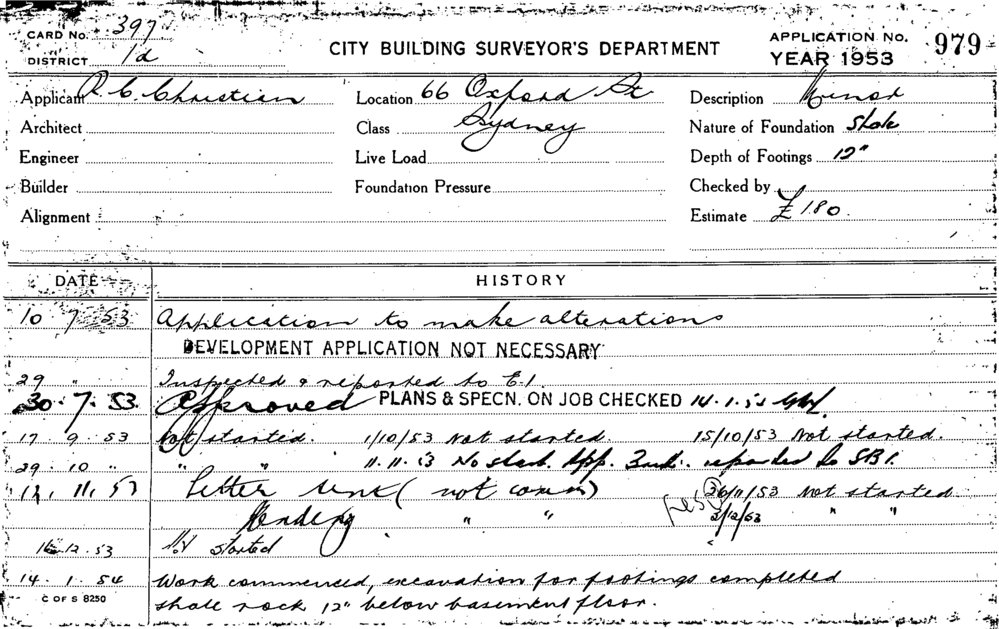 CARD No. 397
DISTRICT 1d
CITY BUILDING SURVEYOR'S DEPARTMENT
APPLICATION No. 979
YEAR 1953
Applicant C. Christian
Location 66 Oxford St
Description Minor
Architect
Class Sydney
Nature of Foundation Shale
Engineer
Live Load
Depth of Footings 12"
Builder
Foundation Pressure
Checked by
Alignment
Estimate £180.
DATE HISTORY
10 7 53 Application to make alterations
DEVELOPMENT APPLICATION NOT NECESSARY
29 " Inspected & reported to E.I.
30. 7. 53. Approved PLANS & SPECN. ON JOB CHECKED 14.1.
17. 9. 53 Not started. 1/10/53 Not started. 15/10/53 Not started.
29. 10 " " " 11.11.53 No start. App. reported to SBI.
11. 53 Letter sent (not comm) 26/11/53 Not started
Pending " " 3/12/53 " "
12. 53 Not started
14. 1. 54 Work commenced, excavation for footings completed
C OF S 8250 shale rock 12" below basement floor.